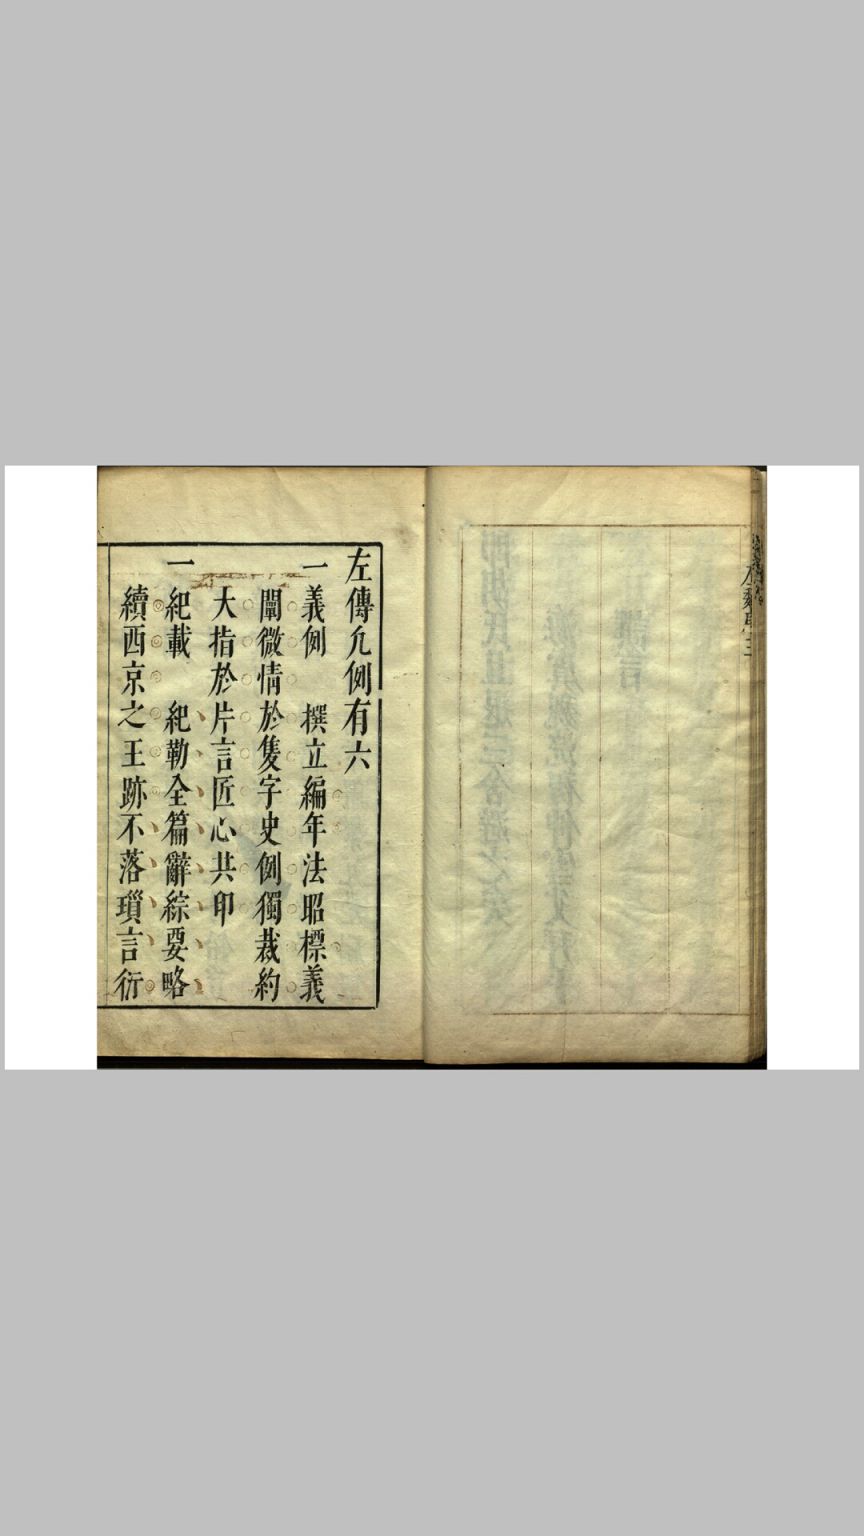 左傳凡例有六
一義例 撰立編年法昭標義
闡微情於隻字史例獨裁約
大指於片言匠心共印
一紀載 紀勒全篇辭綜要略
續西京之王跡不落瑣言衍